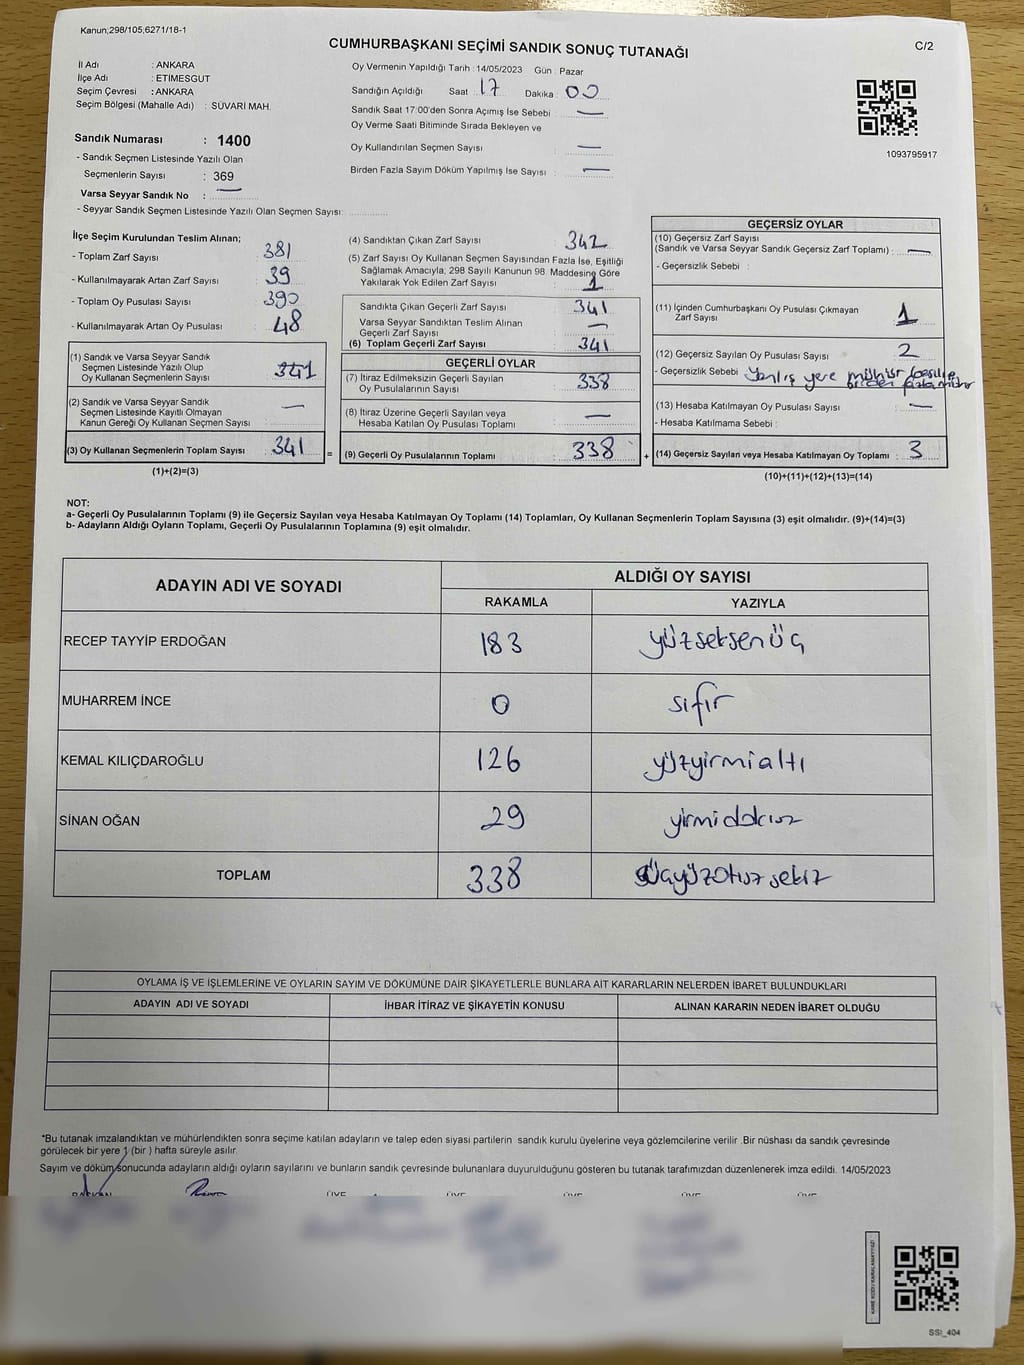 Kanun;298/105;6271/18-1
CUMHURBAŞKANI SEÇİMİ SANDIK SONUÇ TUTANAĞI
C/2
İl Adı : ANKARA
İlçe Adı : ETİMESGUT
Seçim Çevresi : ANKARA
Seçim Bölgesi (Mahalle Adı) : SÜVARİ MAH.
Sandık Numarası : 1400
- Sandık Seçmen Listesinde Yazılı Olan
Seçmenlerin Sayısı : 369
Varsa Seyyar Sandık No : —
- Seyyar Sandık Seçmen Listesinde Yazılı Olan Seçmen Sayısı:
Oy Vermenin Yapıldığı Tarih : 14/05/2023 Gün : Pazar
Sandığın Açıldığı Saat : 17 Dakika : 00
Sandık Saat 17:00'den Sonra Açımış İse Sebebi : —
Oy Verme Saati Bitiminde Sırada Bekleyen ve
Oy Kullandırılan Seçmen Sayısı : —
Birden Fazla Sayım Döküm Yapılmış İse Sayısı : —
1093795917
İlçe Seçim Kurulundan Teslim Alınan;
- Toplam Zarf Sayısı : 381
- Kullanılmayarak Artan Zarf Sayısı : 39
- Toplam Oy Pusulası Sayısı : 390
- Kullanılmayarak Artan Oy Pusulası : 48
(1) Sandık ve Varsa Seyyar Sandık
Seçmen Listesinde Yazılı Olup
Oy Kullanan Seçmenlerin Sayısı : 341
(2) Sandık ve Varsa Seyyar Sandık
Seçmen Listesinde Kayıtlı Olmayan
Kanun Gereği Oy Kullanan Seçmen Sayısı : —
(3) Oy Kullanan Seçmenlerin Toplam Sayısı : 341 =
(1)+(2)=(3)
(4) Sandıktan Çıkan Zarf Sayısı : 342
(5) Zarf Sayısı Oy Kullanan Seçmen Sayısından Fazla İse, Eşitliği
Sağlamak Amacıyla, 298 Sayılı Kanunun 98. Maddesine Göre
Yakılarak Yok Edilen Zarf Sayısı : 1
Sandıkta Çıkan Geçerli Zarf Sayısı : 341
Varsa Seyyar Sandıktan Teslim Alınan
Geçerli Zarf Sayısı : —
(6) Toplam Geçerli Zarf Sayısı : 341
GEÇERLİ OYLAR
(7) İtiraz Edilmeksizin Geçerli Sayılan
Oy Pusulalarının Sayısı : 338
(8) İtiraz Üzerine Geçerli Sayılan veya
Hesaba Katılan Oy Pusulası Toplamı : —
(9) Geçerli Oy Pusulalarının Toplamı : 338 +
GEÇERSİZ OYLAR
(10) Geçersiz Zarf Sayısı
(Sandık ve Varsa Seyyar Sandık Geçersiz Zarf Toplamı) : —
- Geçersizlik Sebebi :
(11) İçinden Cumhurbaşkanı Oy Pusulası Çıkmayan
Zarf Sayısı : 1
(12) Geçersiz Sayılan Oy Pusulası Sayısı : 2
- Geçersizlik Sebebi : Yanlış yere mühür
birden fazla mühür
(13) Hesaba Katılmayan Oy Pusulası Sayısı : —
- Hesaba Katılmama Sebebi :
(14) Geçersiz Sayılan veya Hesaba Katılmayan Oy Toplamı : 3
(10)+(11)+(12)+(13)=(14)
NOT:
a- Geçerli Oy Pusulalarının Toplamı (9) ile Geçersiz Sayılan veya Hesaba Katılmayan Oy Toplamı (14) Toplamları, Oy Kullanan Seçmenlerin Toplam Sayısına (3) eşit olmalıdır. (9)+(14)=(3)
b- Adayların Aldığı Oyların Toplamı, Geçerli Oy Pusulalarının Toplamına (9) eşit olmalıdır.
ADAYIN ADI VE SOYADI ALDIĞI OY SAYISI
RAKAMLA YAZIYLA
RECEP TAYYİP ERDOĞAN 183 yüzseksenüç
MUHARREM İNCE 0 sıfır
KEMAL KILIÇDAROĞLU 126 yüzyirmialtı
SİNAN OĞAN 29 yirmidokuz
TOPLAM 338 üçyüzotuzsekiz
OYLAMA İŞ VE İŞLEMLERİNE VE OYLARIN SAYIM VE DÖKÜMÜNE DAİR ŞİKAYETLERLE BUNLARA AİT KARARLARIN NELERDEN İBARET BULUNDUKLARI
ADAYIN ADI VE SOYADI İHBAR İTİRAZ VE ŞİKAYETİN KONUSU ALINAN KARARIN NEDEN İBARET OLDUĞU
*Bu tutanak imzalandıktan ve mühürlendikten sonra seçime katılan adayların ve talep eden siyasi partilerin sandık kurulu üyelerine veya gözlemcilerine verilir .Bir nüshası da sandık çevresinde
görülecek bir yere 1 (bir ) hafta süreyle asılır.
Sayım ve döküm sonucunda adayların aldığı oyların sayılarını ve bunların sandık çevresinde bulunanlara duyurulduğunu gösteren bu tutanak tarafımızdan düzenlenerek imza edildi. 14/05/2023
BAŞKAN ÜYE ÜYE ÜYE ÜYE ÜYE
SSI_404